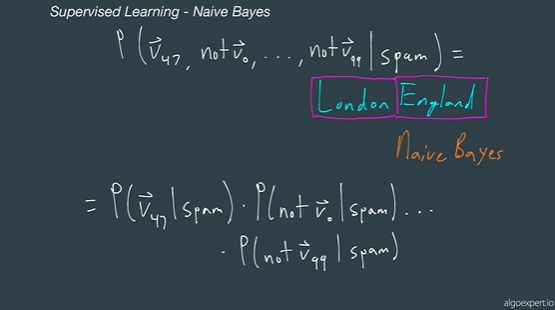 Supervised Learning - Naive Bayes
P(v⃗₄₇, not v⃗₀, ..., not v⃗₉₉ | spam) =
London England
Naive Bayes
= P(v⃗₄₇ | spam) · P(not v⃗₀ | spam) ...
· P(not v⃗₉₉ | spam)
algoexpert.io